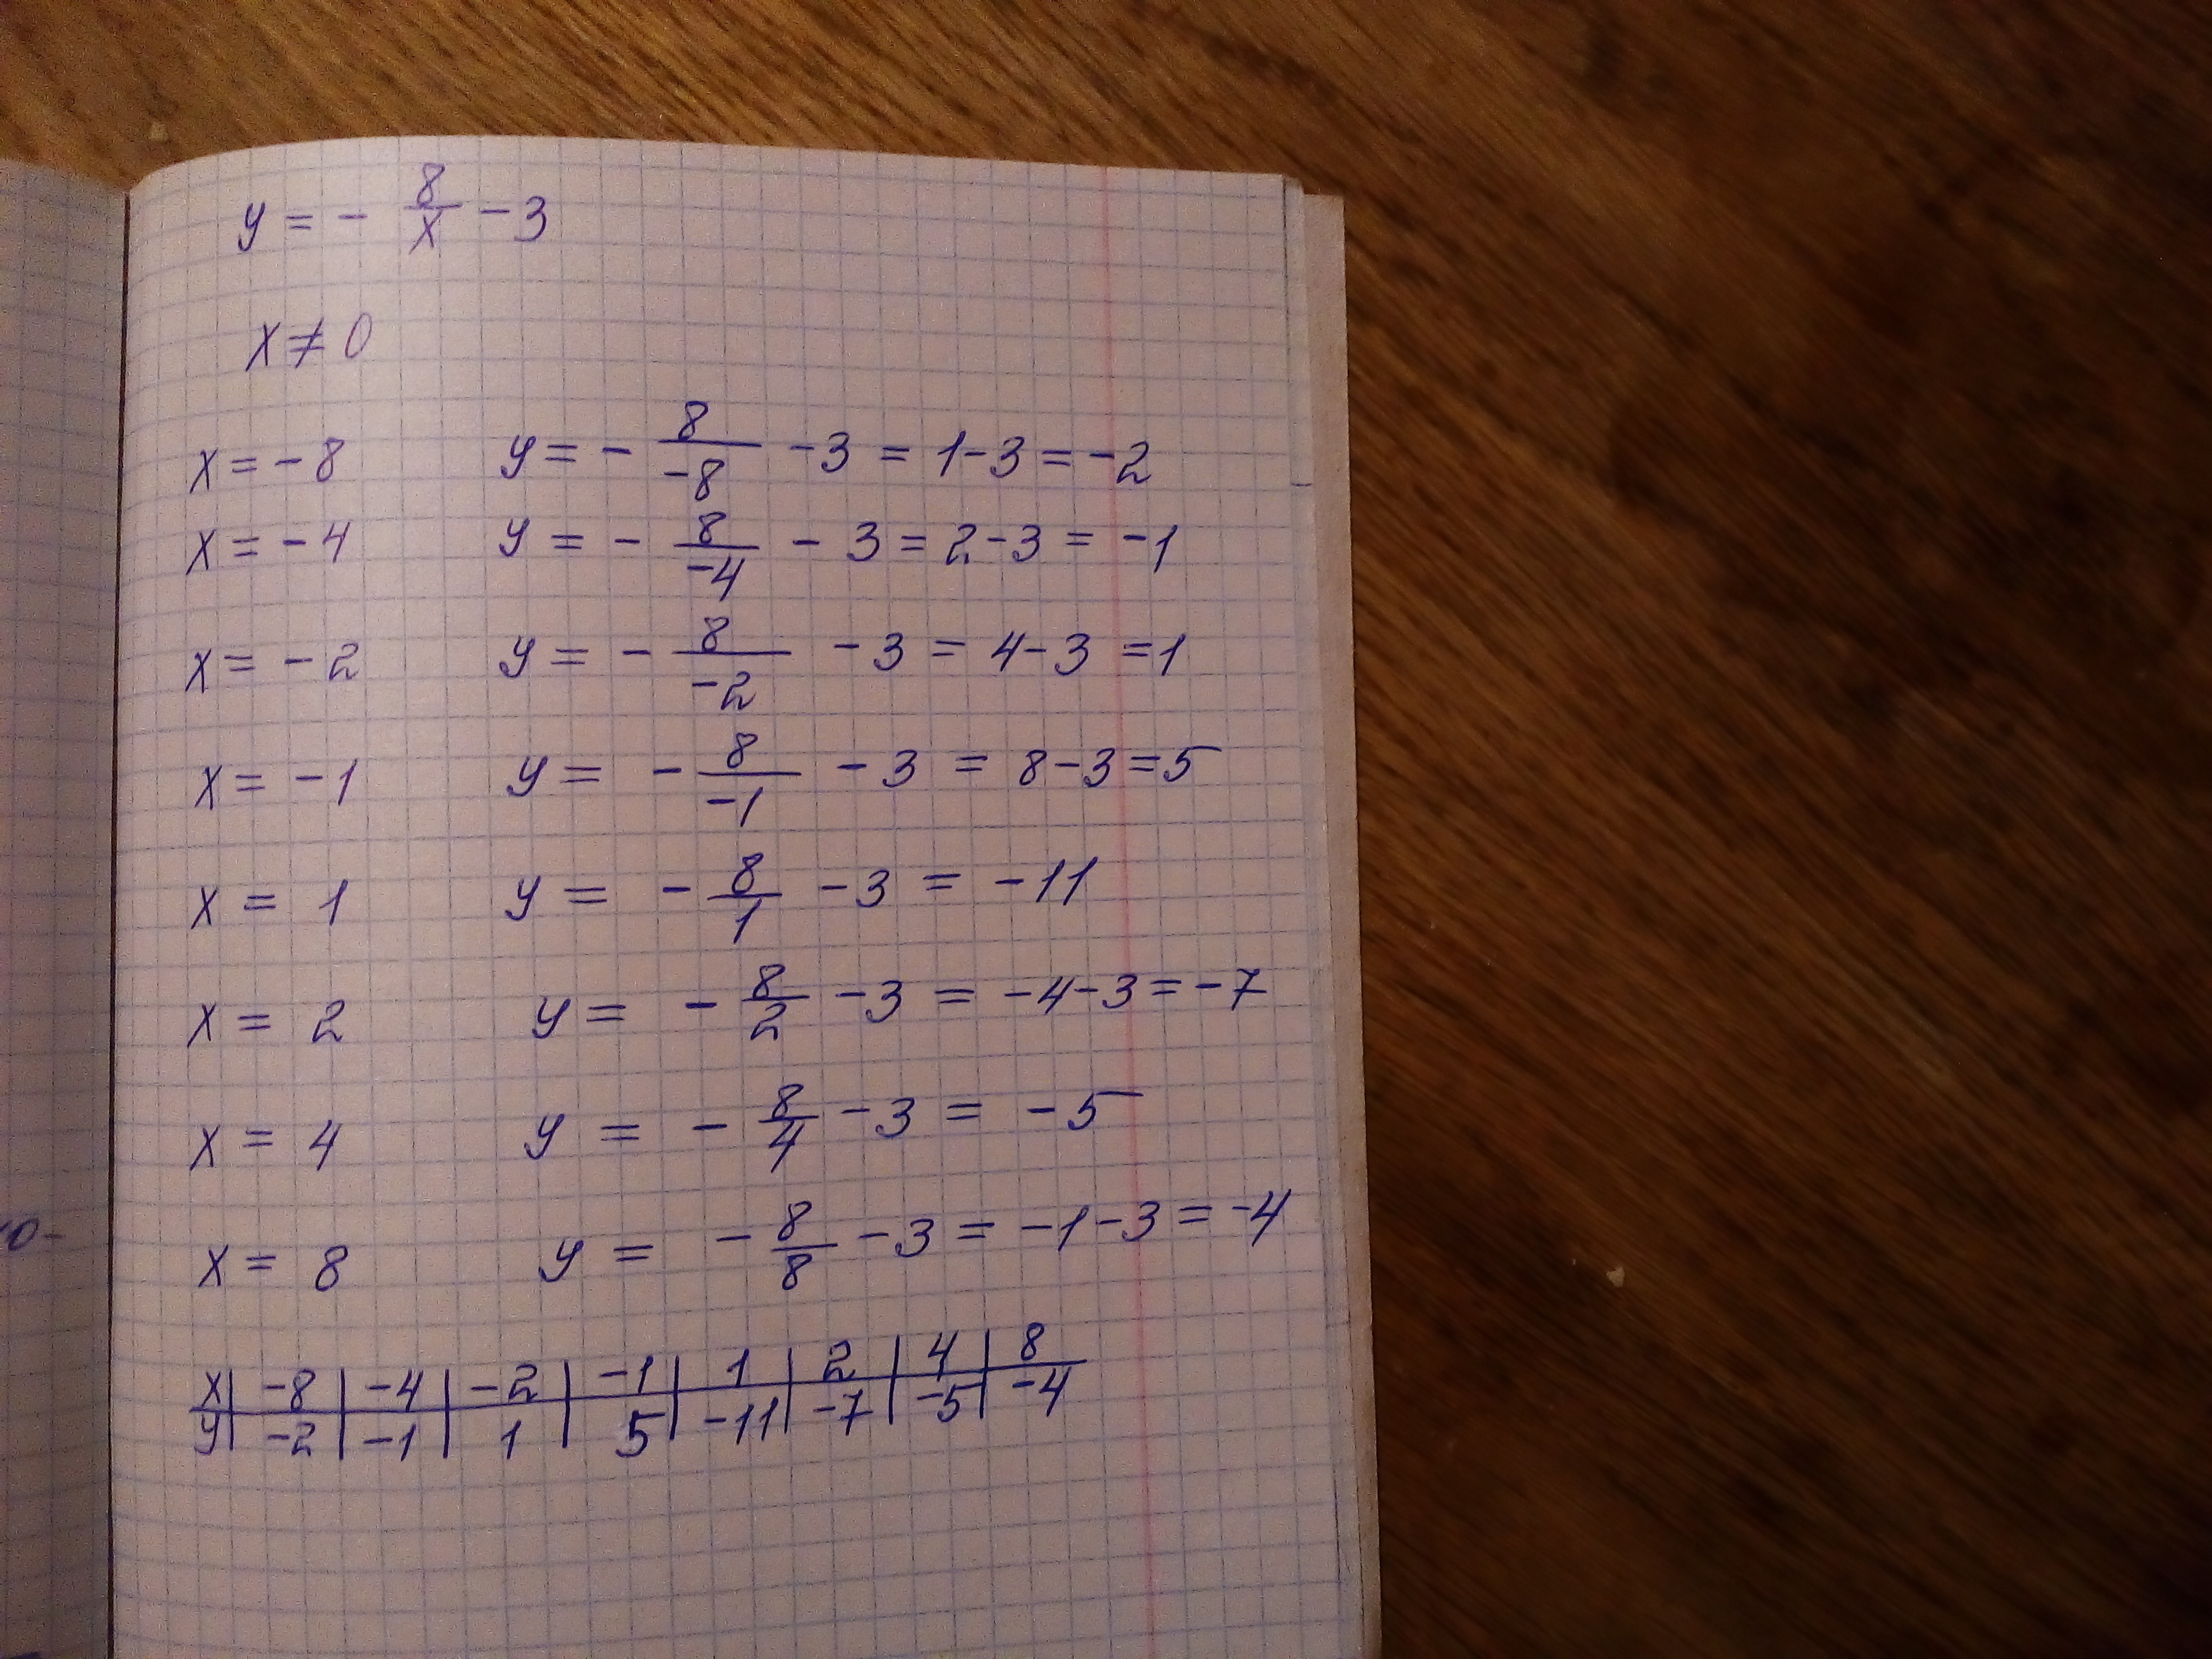 y = - 8/x - 3
x ≠ 0
x = -8 y = - 8/-8 - 3 = 1 - 3 = -2
x = -4 y = - 8/-4 - 3 = 2 - 3 = -1
x = -2 y = - 8/-2 - 3 = 4 - 3 = 1
x = -1 y = - 8/-1 - 3 = 8 - 3 = 5
x = 1 y = - 8/1 - 3 = -11
x = 2 y = - 8/2 - 3 = -4 - 3 = -7
x = 4 y = - 8/4 - 3 = -5
x = 8 y = - 8/8 - 3 = -1 - 3 = -4
x | -8 | -4 | -2 | -1 | 1 | 2 | 4 | 8
y | -2 | -1 | 1 | 5 | -11 | -7 | -5 | -4